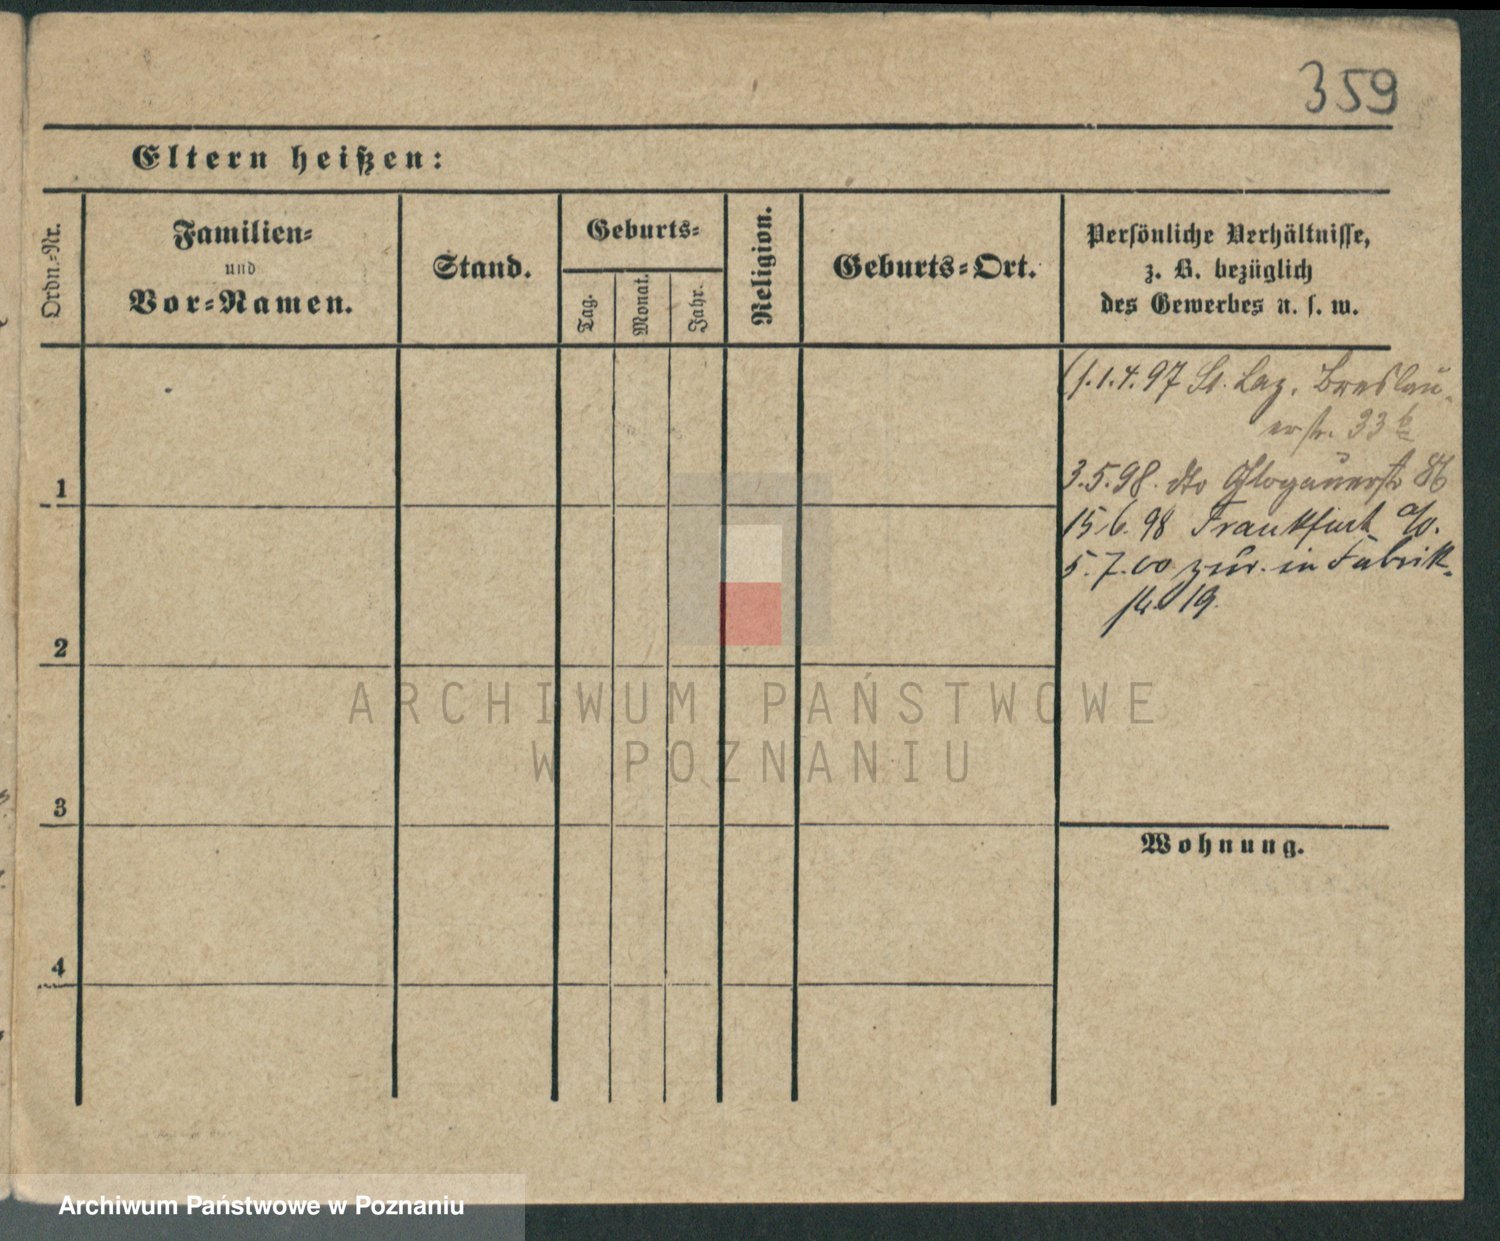 359
Eltern heißen:
Ordn.-Nr.
Familien-
und
Vor-Namen.
Stand.
Geburts-
Tag.
Monat.
Jahr.
Religion.
Geburts-Ort.
Persönliche Verhältnisse,
z. B. bezüglich
des Gewerbes u. s. w.
1.4.97 St. Laz. Breslau-
erstr. 33
1
3.5.98. dto Glogauerstr
15.6.98 Frankfurt a/O.
5.7.00 zur. in Fabrik-
str. 19.
2
3
Wohnung.
4
ARCHIWUM PAŃSTWOWE
W POZNANIU
Archiwum Państwowe w Poznaniu